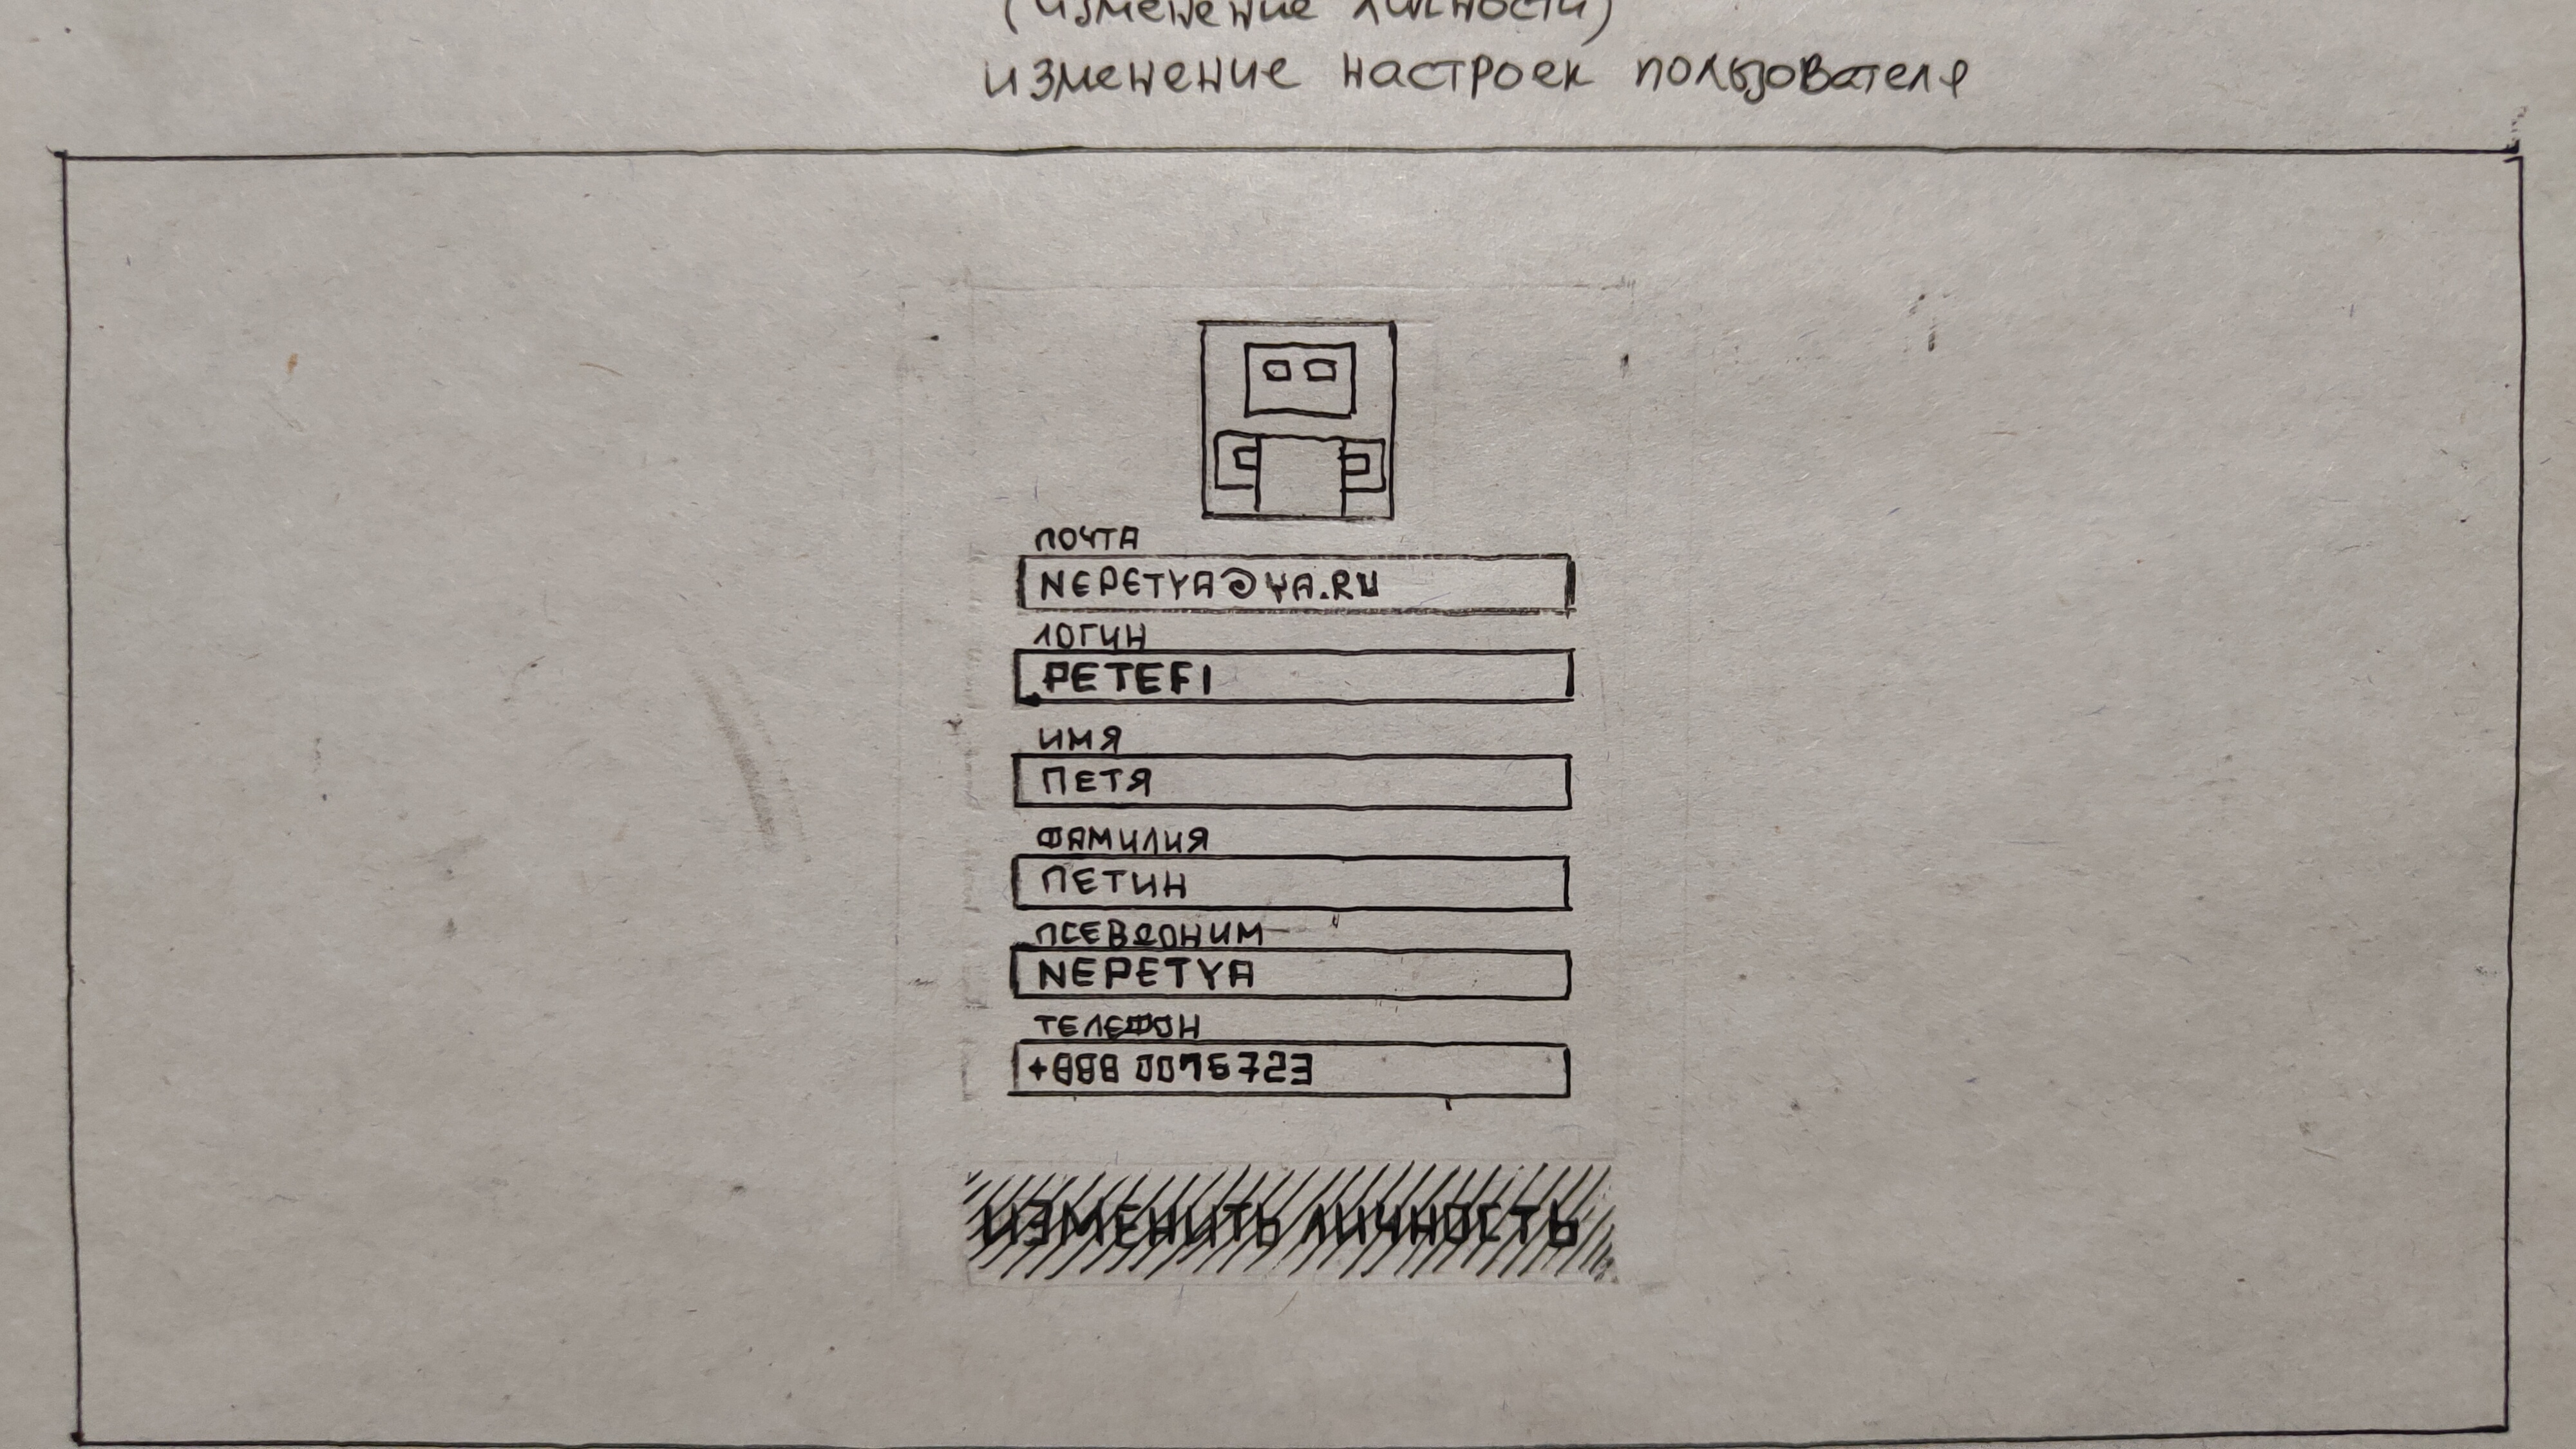 (изменение личности)
изменение настроек пользователя
ПОЧТА
NEPETYA@YA.RU
ЛОГИН
PETEFI
ИМЯ
ПЕТЯ
ФАМИЛИЯ
ПЕТИН
ПСЕВДОНИМ
NEPETYA
ТЕЛЕФОН
+888 0076723
ИЗМЕНИТЬ ЛИЧНОСТЬ